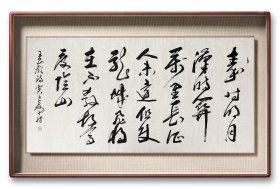 秦時明月
漢時關
萬里長征
人未還但使
龍城飛將
在不教胡馬
度陰山
王昌齡詩